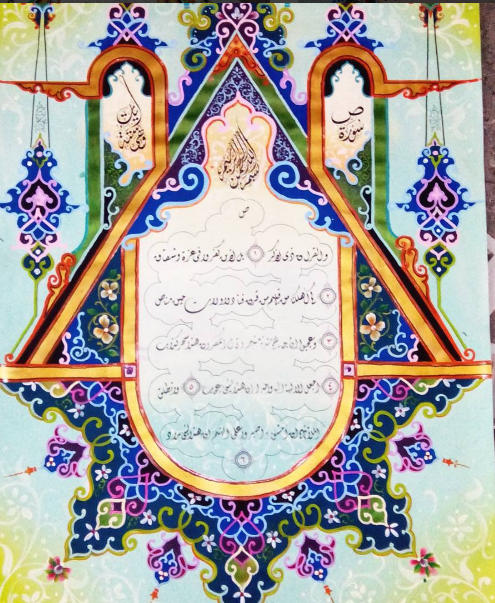 سورة ص
بسم الله الرحمن الرحيم
ص
والقرآن ذی الذکر ۱ بل الذین کفروا فی عزة وشقاق
۲ کم اهلکنا من قبلهم من قرن فنادوا ولات حین مناص
۳ وعجبوا ان جاءهم منذر منهم وقال الکفرون هذا سحر کذاب
۴ اجعل الالهة الها واحدا ان هذا لشی عجاب ۵ وانطلق
الملا منهم ان امشوا واصبروا علی الهتکم ان هذا لشی یراد
۶